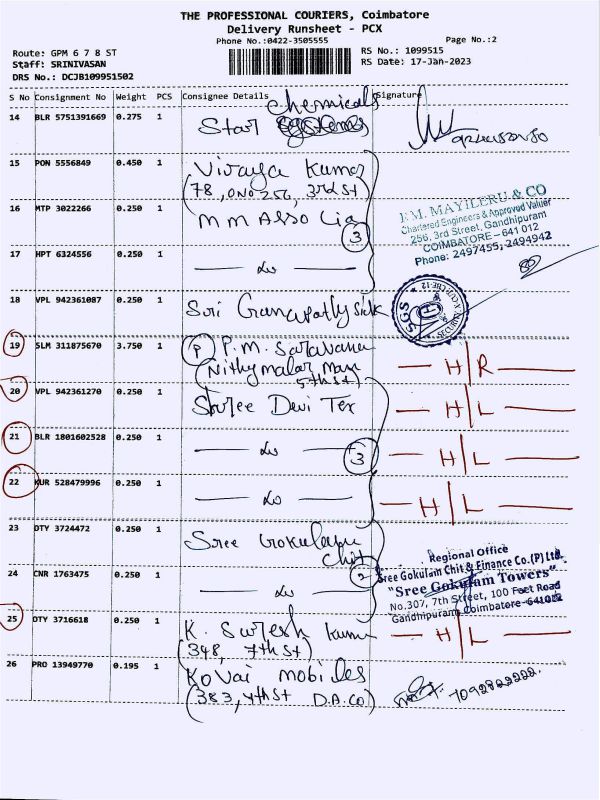 THE PROFESSIONAL COURIERS, Coimbatore
Delivery Runsheet - PCX
Phone No.:0422-3505555 Page No.:2
Route: GPM 6 7 8 ST RS No.: 1099515
Staff: SRINIVASAN RS Date: 17-Jan-2023
DRS No.: DCJB109951502
S No Consignment No Weight PCS Consignee Details Signature
14 BLR 5751391669 0.275 1 Star chemicals
15 PON 5556849 0.450 1 Vijaya Kumar
(78, ONO 256, 3rd St)
16 MTP 3022266 0.250 1 MM Asso Cia
3
F.M. MAYILERU & CO
Chartered Engineers & Approved Valuer
256, 3rd Street, Gandhipuram
COIMBATORE - 641 012
Phone: 2497455, 2494942
17 HPT 6324556 0.250 1 — do —
18 VPL 942361087 0.250 1 Sri Ganapathy Silk
SGS
19 SLM 311875670 3.750 1 (P) P.M. Saravana — H/R —
(Nithymalar Man
5th St)
20 VPL 942361270 0.250 1 Shree Devi Tex — H/L —
21 BLR 1801602528 0.250 1 — do — 3 — H/L —
22 KUR 528479996 0.250 1 — do — — H/L —
23 DTY 3724472 0.250 1 Sree Gokulam
Chit
2
Regional Office
Sree Gokulam Chit & Finance Co.(P) Ltd.
"Sree Gokulam Towers"
No.307, 7th Street, 100 Feet Road
Gandhipuram, Coimbatore-641012
24 CNR 1763475 0.250 1 — do —
25 DTY 3716618 0.250 1 K. Suresh Kumar — H/L —
(348, 7th St)
26 PRO 13949770 0.195 1 Kovai mobiles
(383, 4th St D.A.CO) 7092822222.